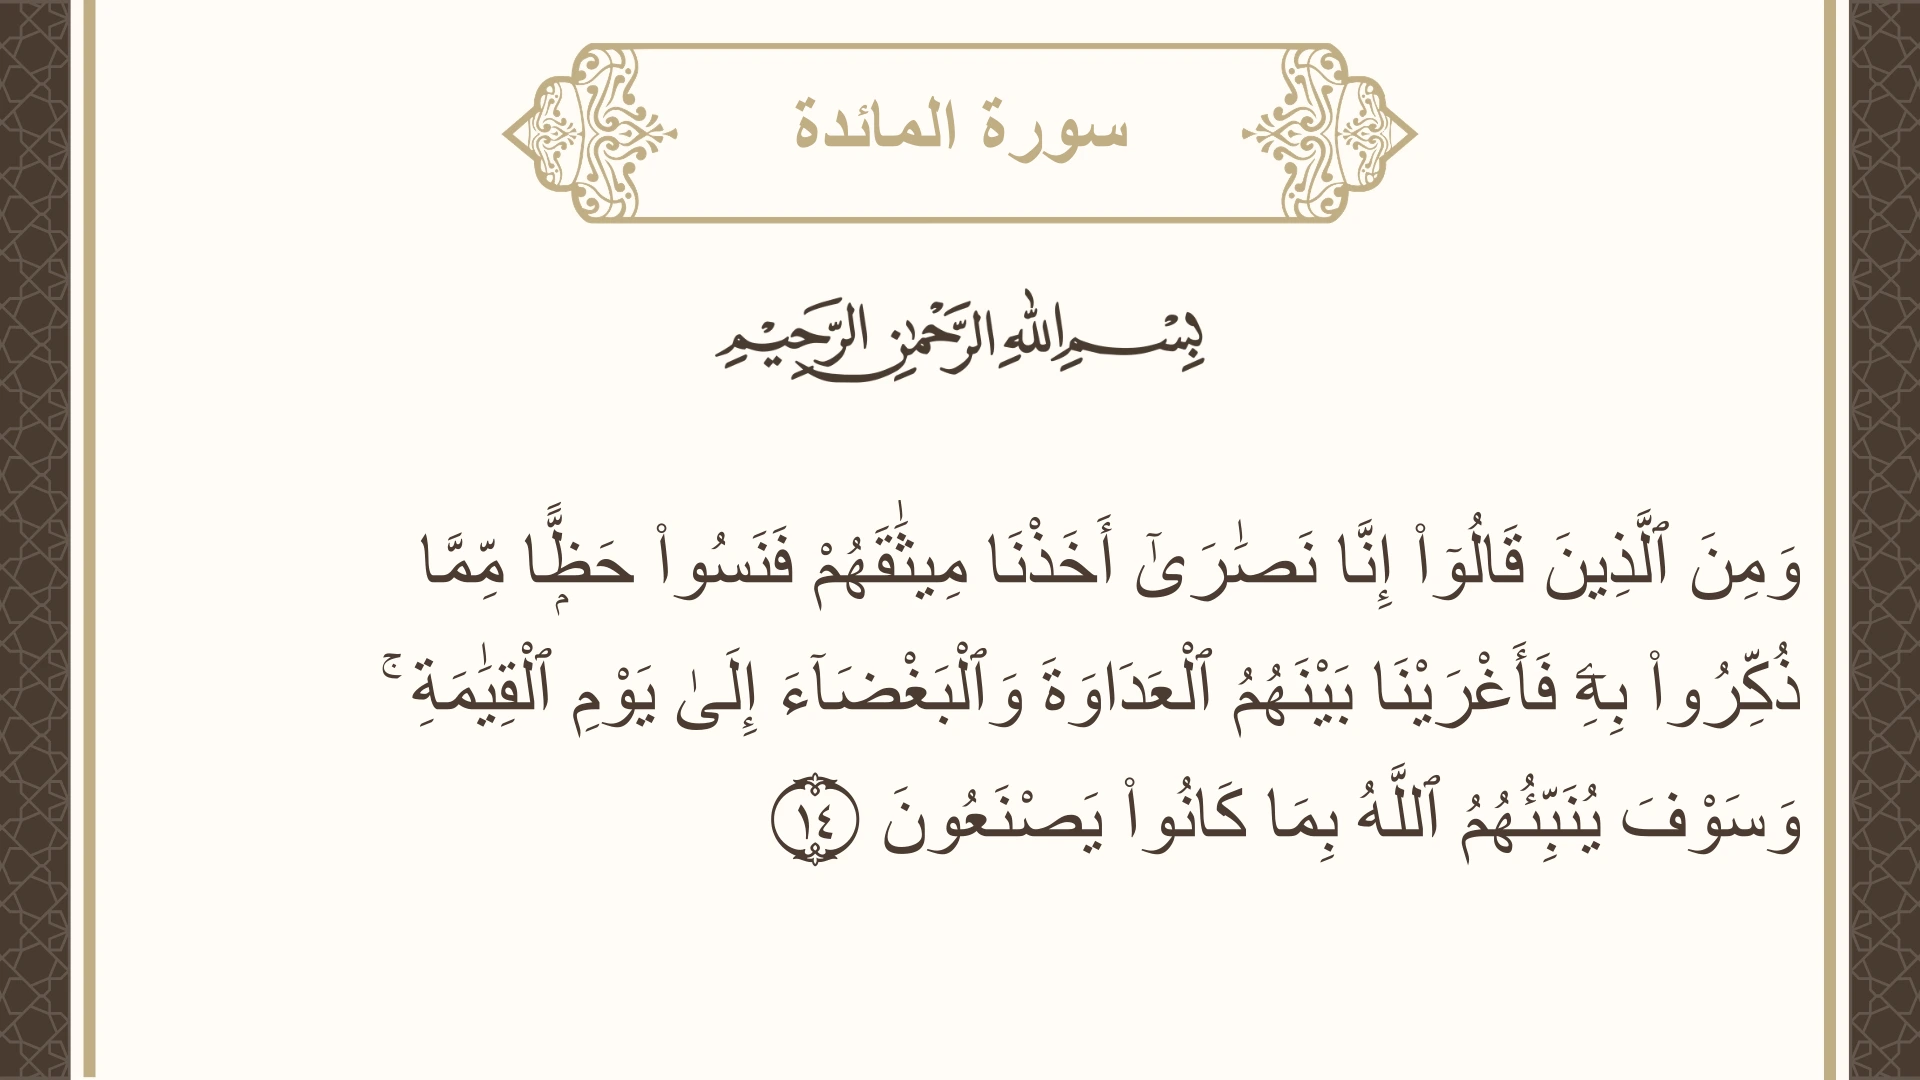 سورة المائدة
بِسْمِ اللَّهِ الرَّحْمَٰنِ الرَّحِيمِ
وَمِنَ ٱلَّذِينَ قَالُوٓا۟ إِنَّا نَصَـٰرَىٰٓ أَخَذْنَا مِيثَـٰقَهُمْ فَنَسُوا۟ حَظًّۭا مِّمَّا
ذُكِّرُوا۟ بِهِۦ فَأَغْرَيْنَا بَيْنَهُمُ ٱلْعَدَاوَةَ وَٱلْبَغْضَآءَ إِلَىٰ يَوْمِ ٱلْقِيَـٰمَةِ ۚ
وَسَوْفَ يُنَبِّئُهُمُ ٱللَّهُ بِمَا كَانُوا۟ يَصْنَعُونَ ١٤